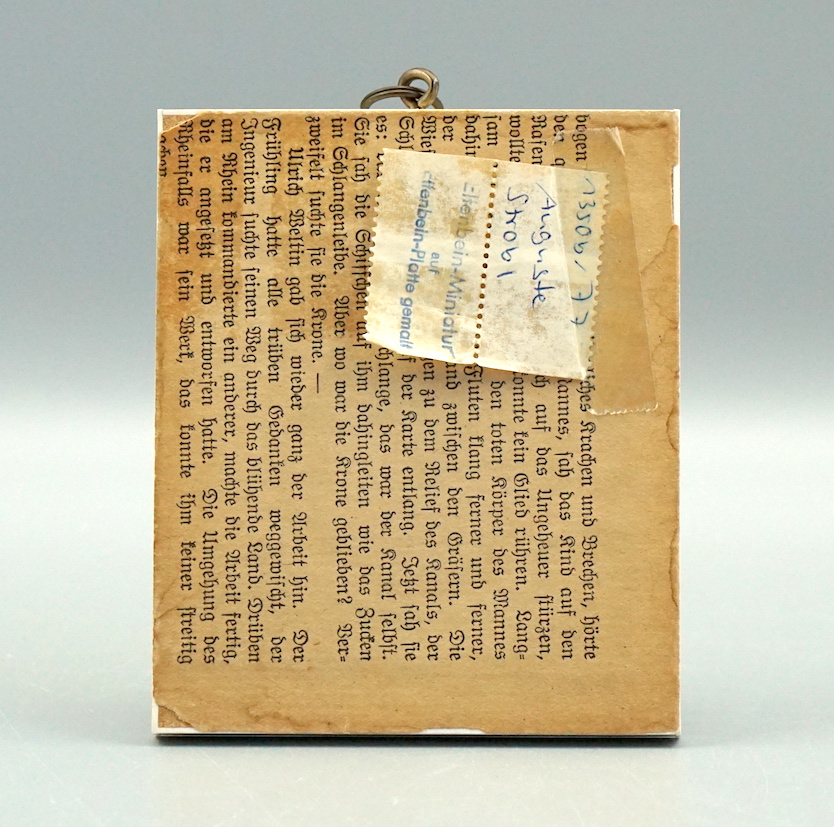 bogen Krachen und Brechen, hörte
Mannes, sah das Kind auf den
Rasen auf das Ungeheuer stürzen,
wollte konnte kein Glied rühren. Lang=
sam den toten Körper des Mannes
Fluten klang ferner und ferner,
der und zwischen den Gräsern. Die
zu dem Relief des Kanals, der
der Karte entlang. Jetzt sah sie
es: Schlange, das war der Kanal selbst.
Sie sah die Schiffchen auf ihm dahingleiten wie das Zucken
im Schlangenleibe. Aber wo war die Krone geblieben? Ver=
zweifelt suchte sie die Krone. —
Ulrich Weltin gab sich wieder ganz der Arbeit hin. Der
Frühling hatte alle trüben Gedanken weggewischt, der
Ingenieur suchte seinen Weg durch das blühende Land. Drüben
am Rhein kommandierte ein anderer, machte die Arbeit fertig,
die er angesetzt und entworfen hatte. Die Umgehung des
Rheinfalls war sein Werk, das konnte ihm keiner streitig
Auguste
Strobl
Elfenbein-Miniatur
auf
Elfenbein-Platte gemalt